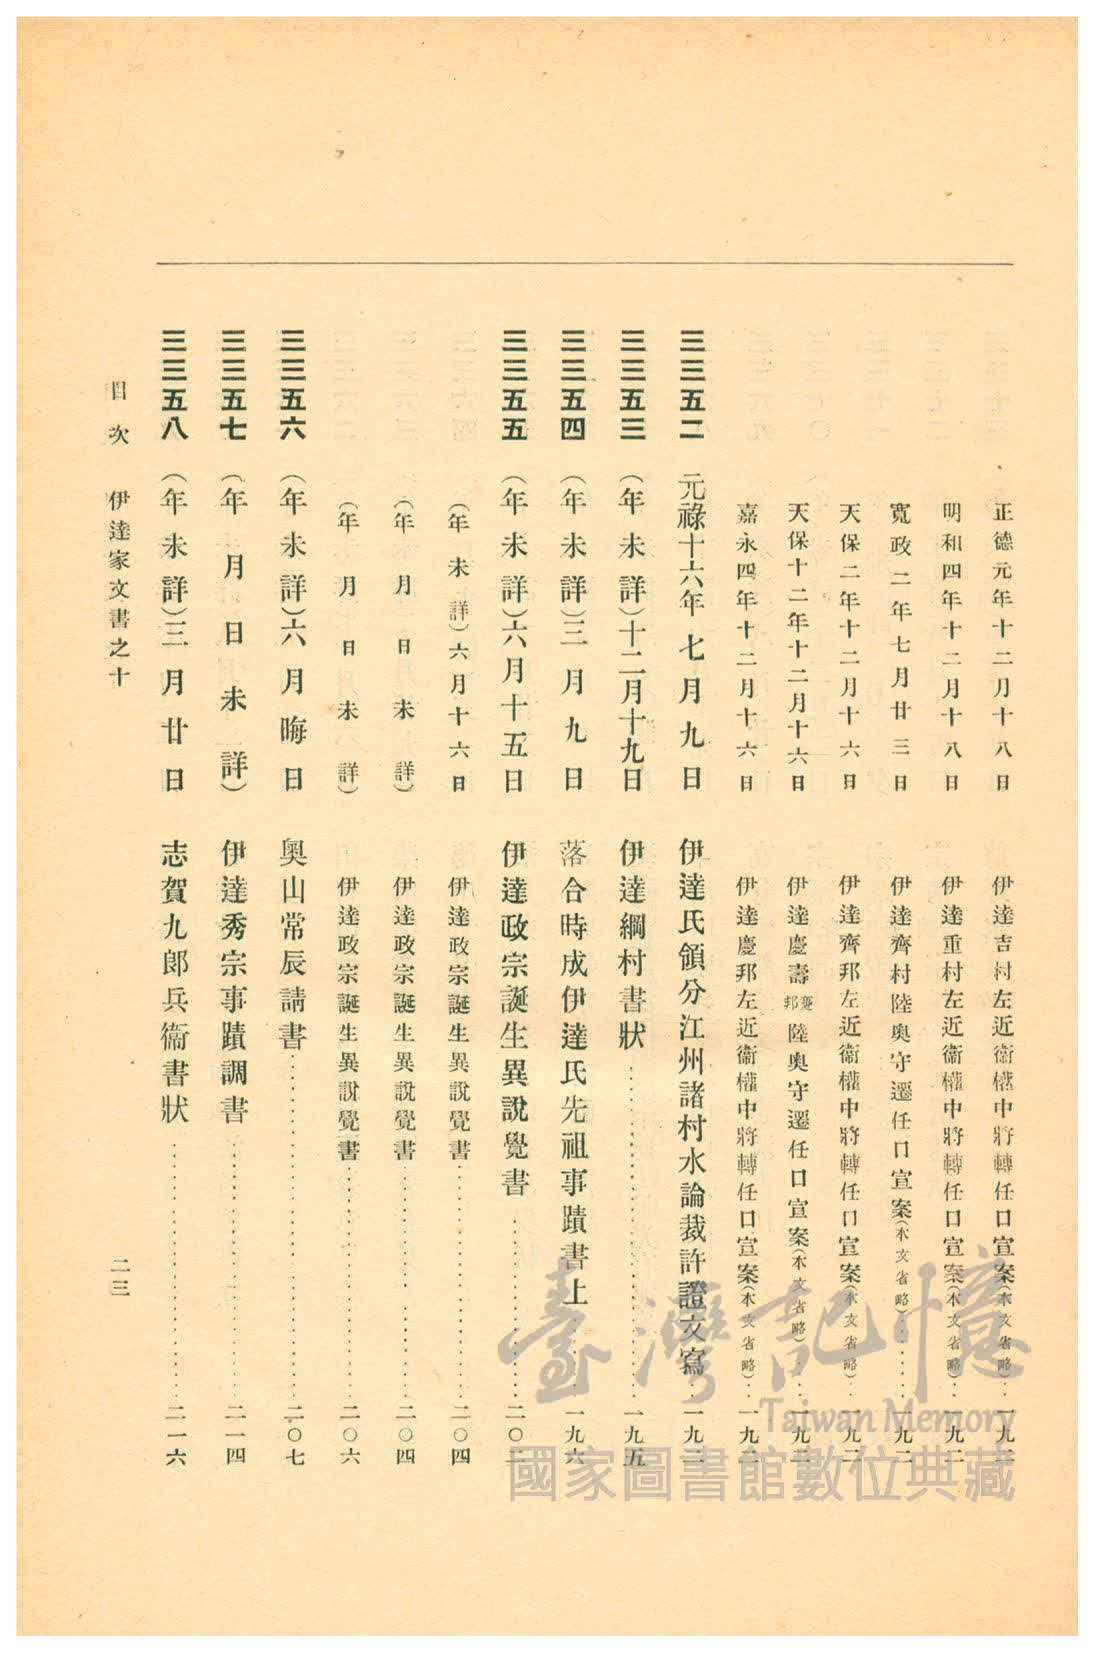 正德元年十二月十八日 伊達吉村左近衞權中將轉任口宣案(本文省略)…一九二
明和四年十二月十八日 伊達重村左近衞權中將轉任口宣案(本文省略)…一九二
寬政二年七月廿三日 伊達齊村陸奧守遷任口宣案(本文省略)……一九二
天保二年十二月十六日 伊達齊邦左近衞權中將轉任口宣案(本文省略)…一九二
天保十二年十二月十六日 伊達慶壽慶邦陸奧守遷任口宣案(本文省略)……一九二
嘉永四年十二月十六日 伊達慶邦左近衞權中將轉任口宣案(本文省略)…一九二
三三五二 元祿十六年七月九日 伊達氏領分江州諸村水論裁許證文寫…一九二
三三五三 (年未詳)十二月十九日 伊達綱村書狀……一九五
三三五四 (年未詳)三月九日 落合時成伊達氏先祖事蹟書上……一九六
三三五五 (年未詳)六月十五日 伊達政宗誕生異說覺書……二〇二
(年未詳)六月十六日 伊達政宗誕生異說覺書……二〇四
(年月日未詳) 伊達政宗誕生異說覺書……二〇四
(年月日未詳) 伊達政宗誕生異說覺書……二〇六
三三五六 (年未詳)六月晦日 奧山常辰請書……二〇七
三三五七 (年月日未詳) 伊達秀宗事蹟調書……二一四
三三五八 (年未詳)三月廿日 志賀九郞兵衞書狀……二一六
目次 伊達家文書之十 二三
臺灣記憶
Taiwan Memory
國家圖書館數位典藏